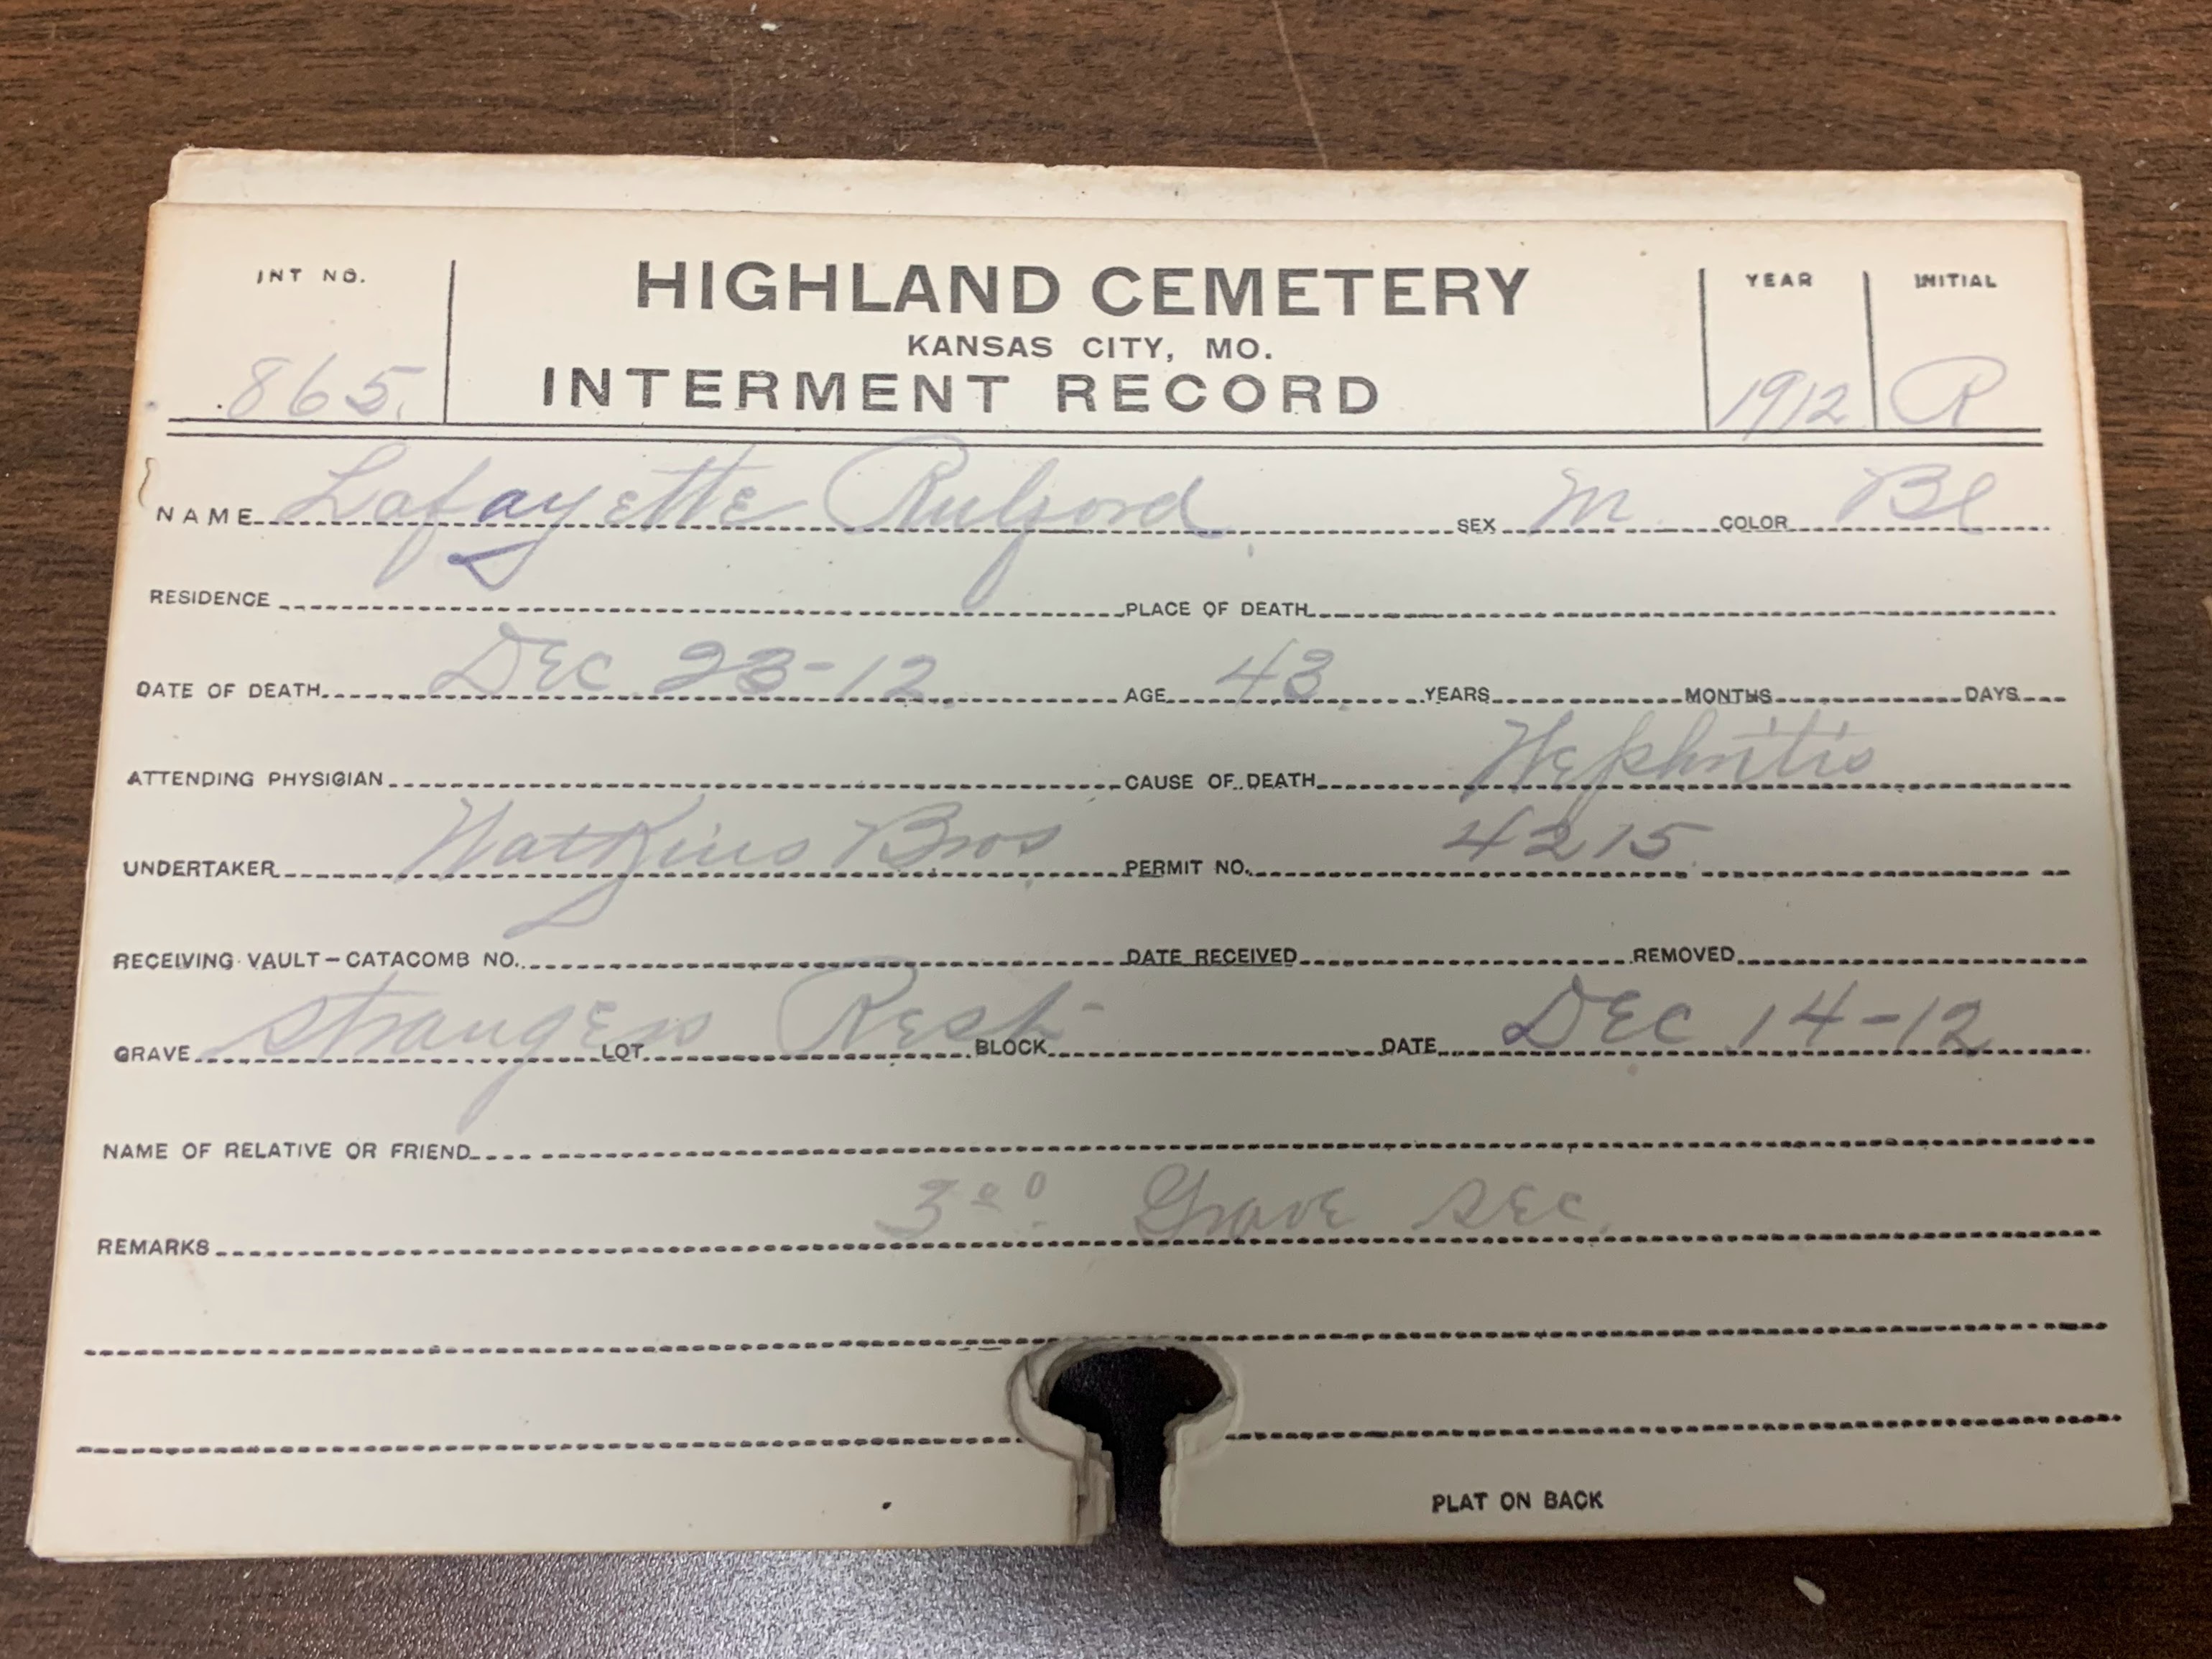 INT NO.
HIGHLAND CEMETERY
YEAR
INITIAL
KANSAS CITY, MO.
865.
INTERMENT RECORD
1912
R
NAME Lafayette SEX M COLOR Bl
RESIDENCE PLACE OF DEATH
DATE OF DEATH Dec 23-12 AGE 43 YEARS MONTHS DAYS
ATTENDING PHYSICIAN CAUSE OF DEATH Nephritis
UNDERTAKER Watkins Bros PERMIT NO. 4215
RECEIVING VAULT-CATACOMB NO. DATE RECEIVED REMOVED
GRAVE Strangers LOT Rest BLOCK DATE Dec 14-12
NAME OF RELATIVE OR FRIEND
REMARKS 3 00 Grave Sec.
PLAT ON BACK